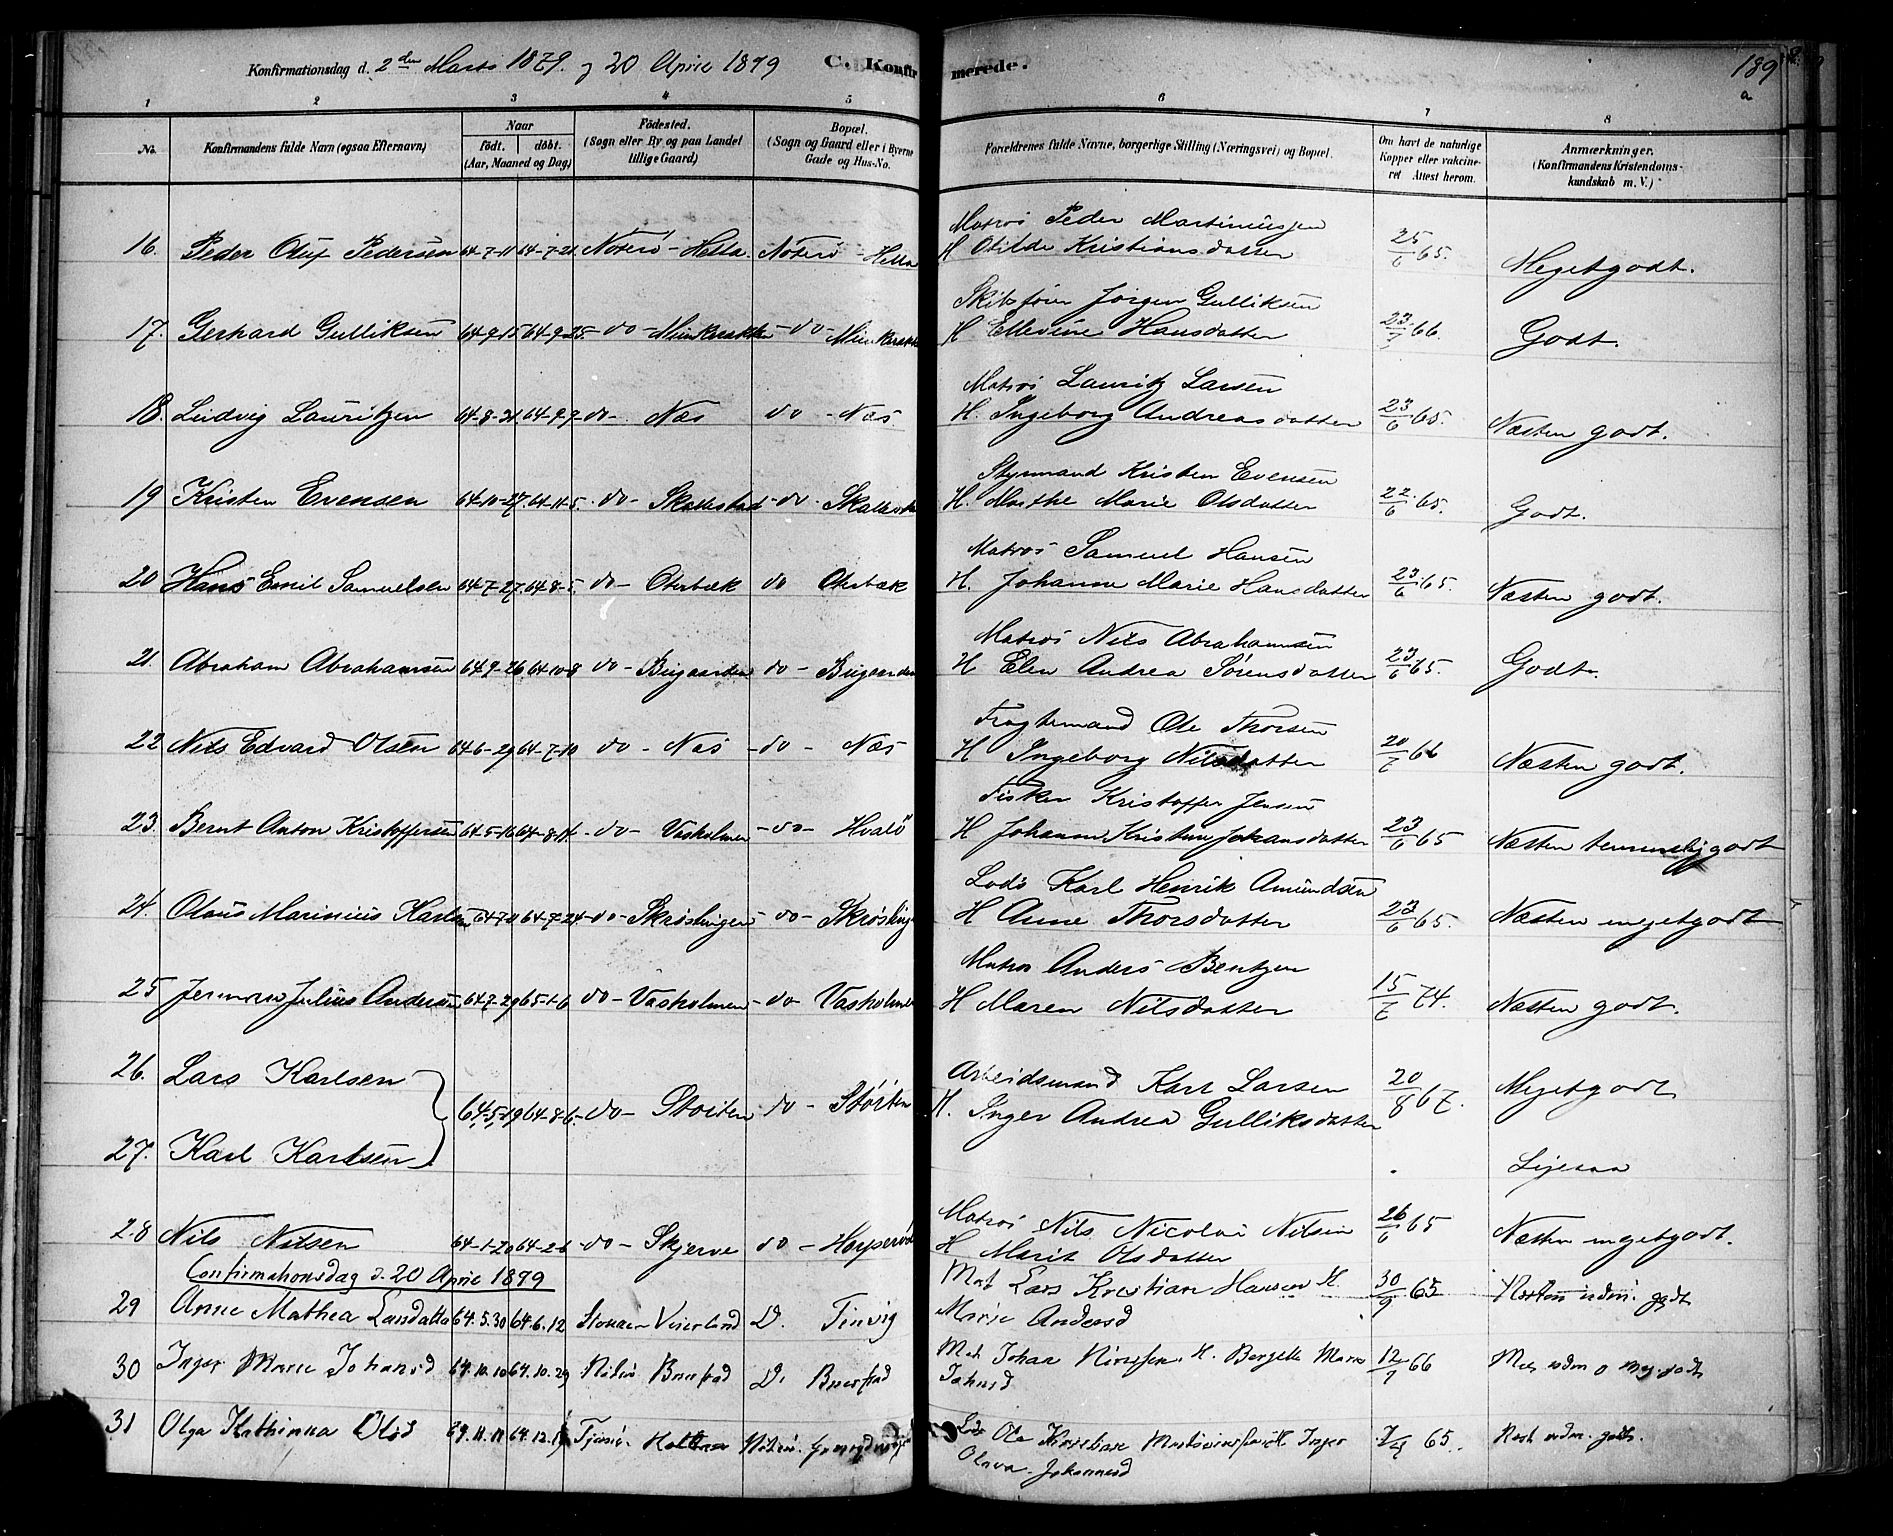 Konfirmationsdag d. 2den Marts 1879. og 20 April 1879 C. Konfirmerede. 189
a
1 2 3 4 5 6 7 8
No. Konfirmandens fulde Navn (ogsaa Efternavn) Naar födt. döbt. (Aar, Maaned og Dag) Födested. (Sogn eller By og paa Landet tillige Gaard) Bopæl. (Sogn og Gaard eller i Byerne Gade og Hus-No. Forældrenes fulde Navne, borgerlige Stilling (Næringsvei) og Bopæl. Om havt de naturlige Kopper eller vakcineret Attest herom. Anmærkninger. (Konfirmandens Kristendomskundskab m. V.)
Matros Peder Martiniusen
16. Peder Oluf Pedersen 64-7-11 64-7-21. Nøterø - Hella. Nøterø - Hella H Otilde Kristiansdatter 25/6 65. Megetgodt.
Skibsfører Jørgen Gulliksen
17. Gerhard Gulliksen 64-9-15 64-9-25. -do- -do- H Ellevine Hansdatter 23/7 66. Godt.
Matros Lauritz Larsen
18. Ludvig Lauritzen 64-8-21. 64-9-9 -do- Næs do - Næs. H. Ingeborg Andreasdatter 23/6 65. Næsten godt.
Styrmand Kristen Evensen
19 Kristen Evensen 64-10-27. 64-11-5. -do- Skallestad -do- H. Marthe Marie Olsdatter 22/6 65. Godt.
Matros Samuel Hansen
20 Hans Emil Samuelsen 64-7-27. 64-8-5. -do- Oterbæk do Oterbæk H. Johanne Marie Hansdatter 23/6 65. Næsten godt.
Matros Nils Abrahamsen
21. Abraham Abrahamsen 64-9-26 64-10-8 do - Bugaarden do - Bugaarden H Elen Andrea Sørensdatter 23/6 65. Godt.
Fragtemand Ole Thorsen
22 Nils Edvard Olsen 64-6-29 64-7-10 do - Næs -do - Næs H Ingeborg Nilsdatter 20/7 66 Næsten godt.
Fisker Kristoffer Jensen
23. Bernt Anton Kristoffersen 64-5-16 64-8-14. -do- Vasholmen -do- Hvalö H Johanne Kristine Johansdatter 23/6 65 Næsten temmeligodt
Lods Karl Henrik Amundsen
24. Olaus Marinius Karlsen 64-7-24. -do- Skrøslingen -do- H Anne Thorsdatter 23/6 65. Næsten megetgodt
Matros Anders Bentzen
25 Julius Andersen 64-7-29 65-1-6 do - Vasholmen -do- Vasholmen H Maren Nilsdatter 15/7 74. Næsten godt.
26. Lars Karlsen Arbeidsmand Karl Larsen 20/8 67. Megetgodt
64-5-19 64-8-6. -do- Støiten do - Støiten H. Inger Andrea Gulliksdatter
27. Karl Karlsen Ligesaa
Matros Nils Nicolai Nilsen
28 Nils Nilsen 64-1-20 64-2-6 -do- Skjerve do - H Marit Olsdatter 26/6 65 Næsten megetgodt.
Confirmationsdag d. 20 April 1879
29 Anne Mathea Larsdatter 64.5.30 64.6.12 Veierland D. Tinvig Mat Lars Kristian Hansen H. Marie Andersd 30/9 65 godt
30 Inger Marie Johansd 64.10.10 64.10.29 Nøterø D. Mat. Johan H. Bergitte Marie 12/7 66
31 Olga Kathinka Olsd 64.11.11 64.12. Tjømø. Nøterø. Lods Ole Kristian H Inger Olava Johannesd 65. Næst udm. godt.